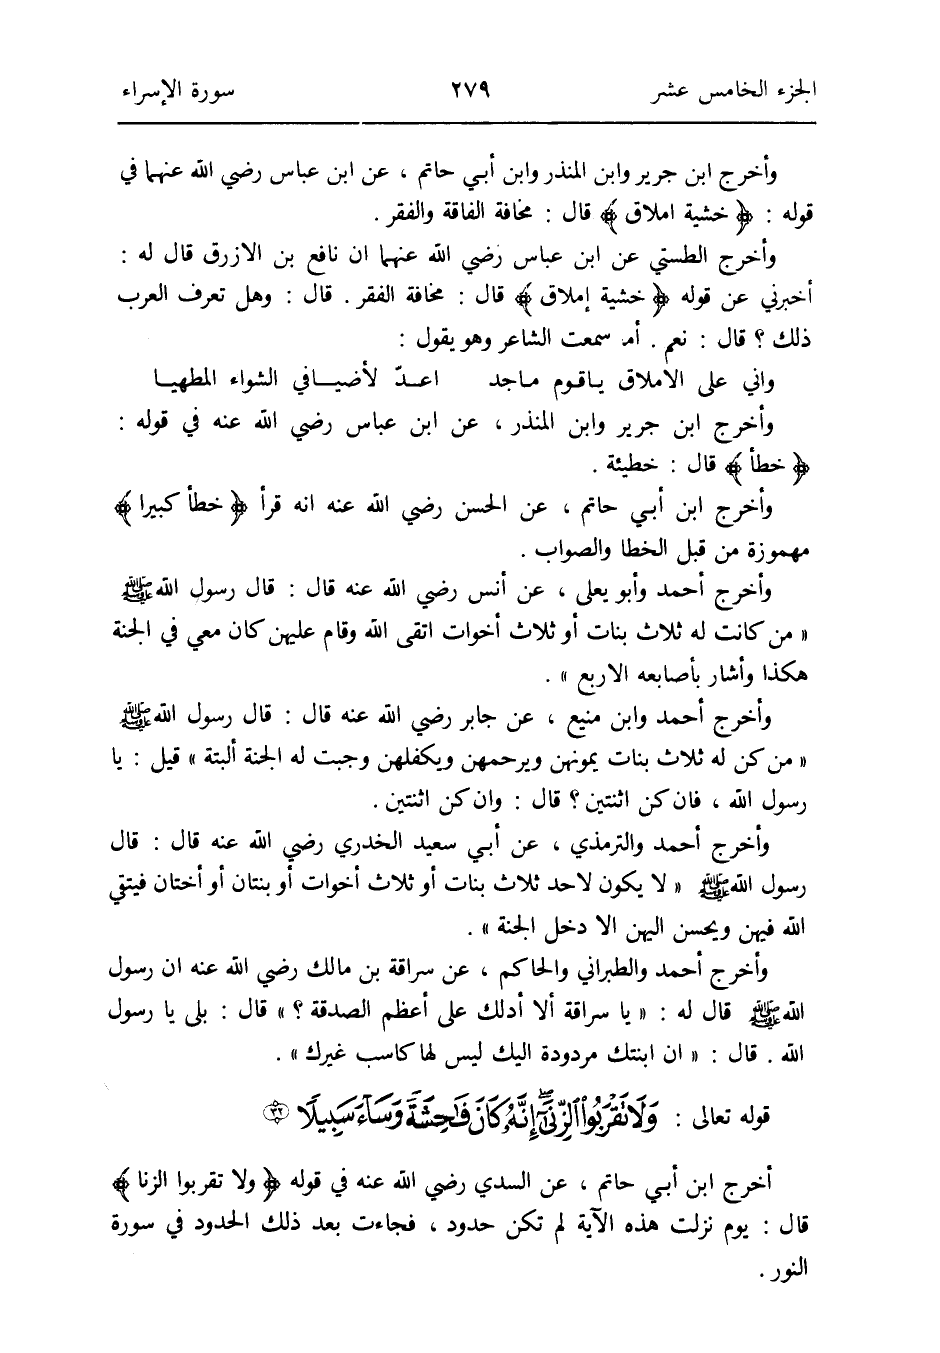 الجزء الخامس عشر ٢٧٩ سورة الإسراء
وأخرج ابن جرير وابن المنذر وابن أبي حاتم ، عن ابن عباس رضي الله عنهما في
قوله : ﴿ خشية املاق ﴾ قال : مخافة الفاقة والفقر .
وأخرج الطستي عن ابن عباس رضي الله عنهما ان نافع بن الازرق قال له :
أخبرني عن قوله ﴿ خشية إملاق ﴾ قال : مخافة الفقر . قال : وهل تعرف العرب
ذلك ؟ قال : نعم . أما سمعت الشاعر وهو يقول :
واني على الاملاق ياقوم ماجد اعدّ لأضيافي الشواء المطهيا
وأخرج ابن جرير وابن المنذر ، عن ابن عباس رضي الله عنه في قوله :
﴿ خطأ ﴾ قال : خطيئة .
وأخرج ابن أبي حاتم ، عن الحسن رضي الله عنه انه قرأ ﴿ خطأ كبيرا ﴾
مهموزة من قبل الخطا والصواب .
وأخرج أحمد وأبو يعلى ، عن أنس رضي الله عنه قال : قال رسول الله ﷺ
« من كانت له ثلاث بنات أو ثلاث أخوات اتقى الله وقام عليهن كان معي في الجنة
هكذا وأشار بأصابعه الاربع » .
وأخرج أحمد وابن منيع ، عن جابر رضي الله عنه قال : قال رسول الله ﷺ
« من كن له ثلاث بنات يمونهن ويرحمهن ويكفلهن وجبت له الجنة ألبتة » قيل : يا
رسول الله ، فان كن اثنتين ؟ قال : وان كن اثنتين .
وأخرج أحمد والترمذي ، عن أبي سعيد الخدري رضي الله عنه قال : قال
رسول الله ﷺ « لا يكون لاحد ثلاث بنات أو ثلاث أخوات أو بنتان أو أختان فيتقي
الله فيهن ويحسن اليهن الا دخل الجنة » .
وأخرج أحمد والطبراني والحاكم ، عن سراقة بن مالك رضي الله عنه ان رسول
الله ﷺ قال له : « يا سراقة ألا أدلك على أعظم الصدقة ؟ » قال : بلى يا رسول
الله . قال : « ان ابنتك مردودة اليك ليس لها كاسب غيرك » .
قوله تعالى : وَلَا تَقْرَبُوا۟ ٱلزِّنَىٰٓ ۖ إِنَّهُۥ كَانَ فَـٰحِشَةً وَسَآءَ سَبِيلًا ٣٢
أخرج ابن أبي حاتم ، عن السدي رضي الله عنه في قوله ﴿ ولا تقربوا الزنا ﴾
قال : يوم نزلت هذه الآية لم تكن حدود ، فجاءت بعد ذلك الحدود في سورة
النور .